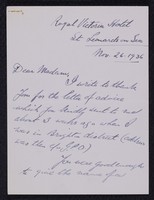 Royal Victoria Hotel
St Leonards on Sea
Nov. 26. 1936
Dear Madam,
I write to thank
you for the letter of advice
which you kindly sent to me
about 3 weeks ago when I
was in Brighton
was
You were good enough
to give the name of a